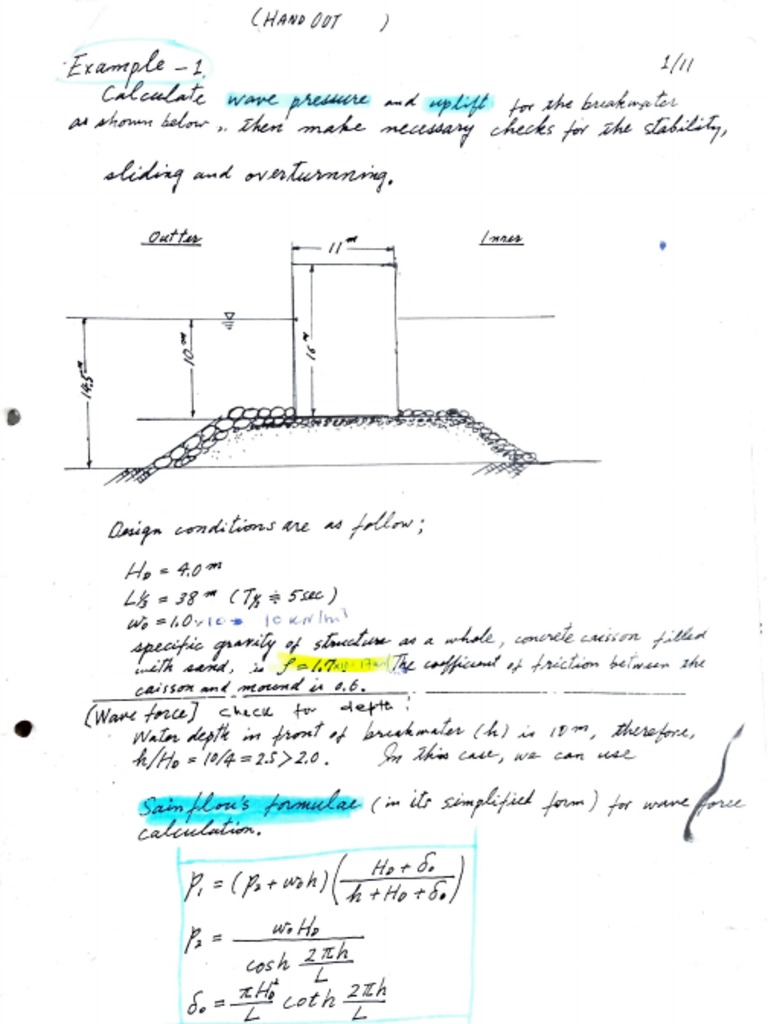 (HAND OUT )
1/11
Example - 1.
Calculate wave pressure and uplift for the breakwater
as shown below, then make necessary checks for the stability,
sliding and overturnning.
Outter
Inner
11m
14.5m
10m
H0 = 4.0 m
L1/3 = 38 m (T1/3 ≒ 5 sec)
w0 = 1.0 10 kN/m³
Design conditions are as follow;
specific gravity of structure as a whole, concrete caisson filled
with sand, is ρ = 1.7 The coefficient of friction between the
caisson and mound is 0.6.
[Wave force] check for depth:
Water depth in front of breakwater (h) is 10 m, therefore,
h/H0 = 10/4 = 2.5 > 2.0. In this case, we can use
Sainflou's formulae (in its simplified form) for wave force
calculation.
P1 = (P2 + w0h) (H0 + δ0 / h + H0 + δ0)
P2 = w0 H0 / cosh 2πh/L
δ0 = πH0²/L coth 2πh/L